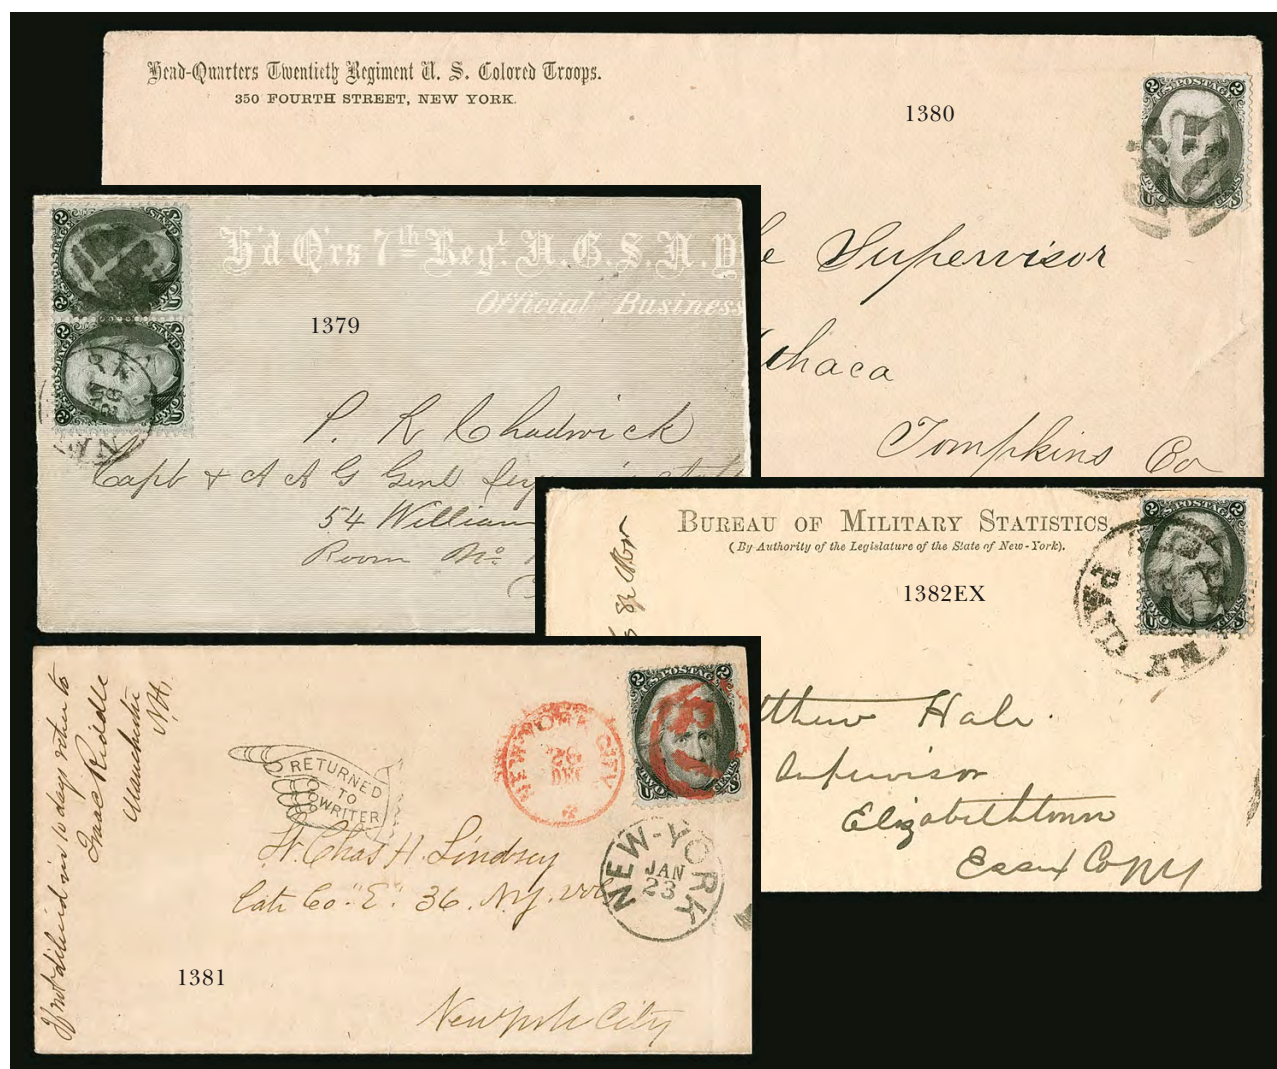 Head-Quarters Twentieth Regiment U. S. Colored Troops.
350 FOURTH STREET, NEW YORK.
1380
2 U.S. POSTAGE 2
e Supervisor
thaca
Tompkins Co
H'd Q'rs 7th Regt. N. G. S. N. Y
Official Business
1379
P. R. Chadwick
Capt & A A G Genl
54 William
Room No.
BUREAU OF MILITARY STATISTICS,
(By Authority of the Legislature of the State of New-York).
1382EX
PAID
thew Hale.
Supervisor
Elizabethtown
Essex Co NY
If not delivered in 10 days return to
Isaac Riddle
Manchester
N.H.
RETURNED
TO
WRITER
NEW YORK CITY
26
DEC
NEW-YORK
JAN
23
Lt. Chas H. Lindsey
Late Co. "E." 36. N.Y. Vol
1381
New York City